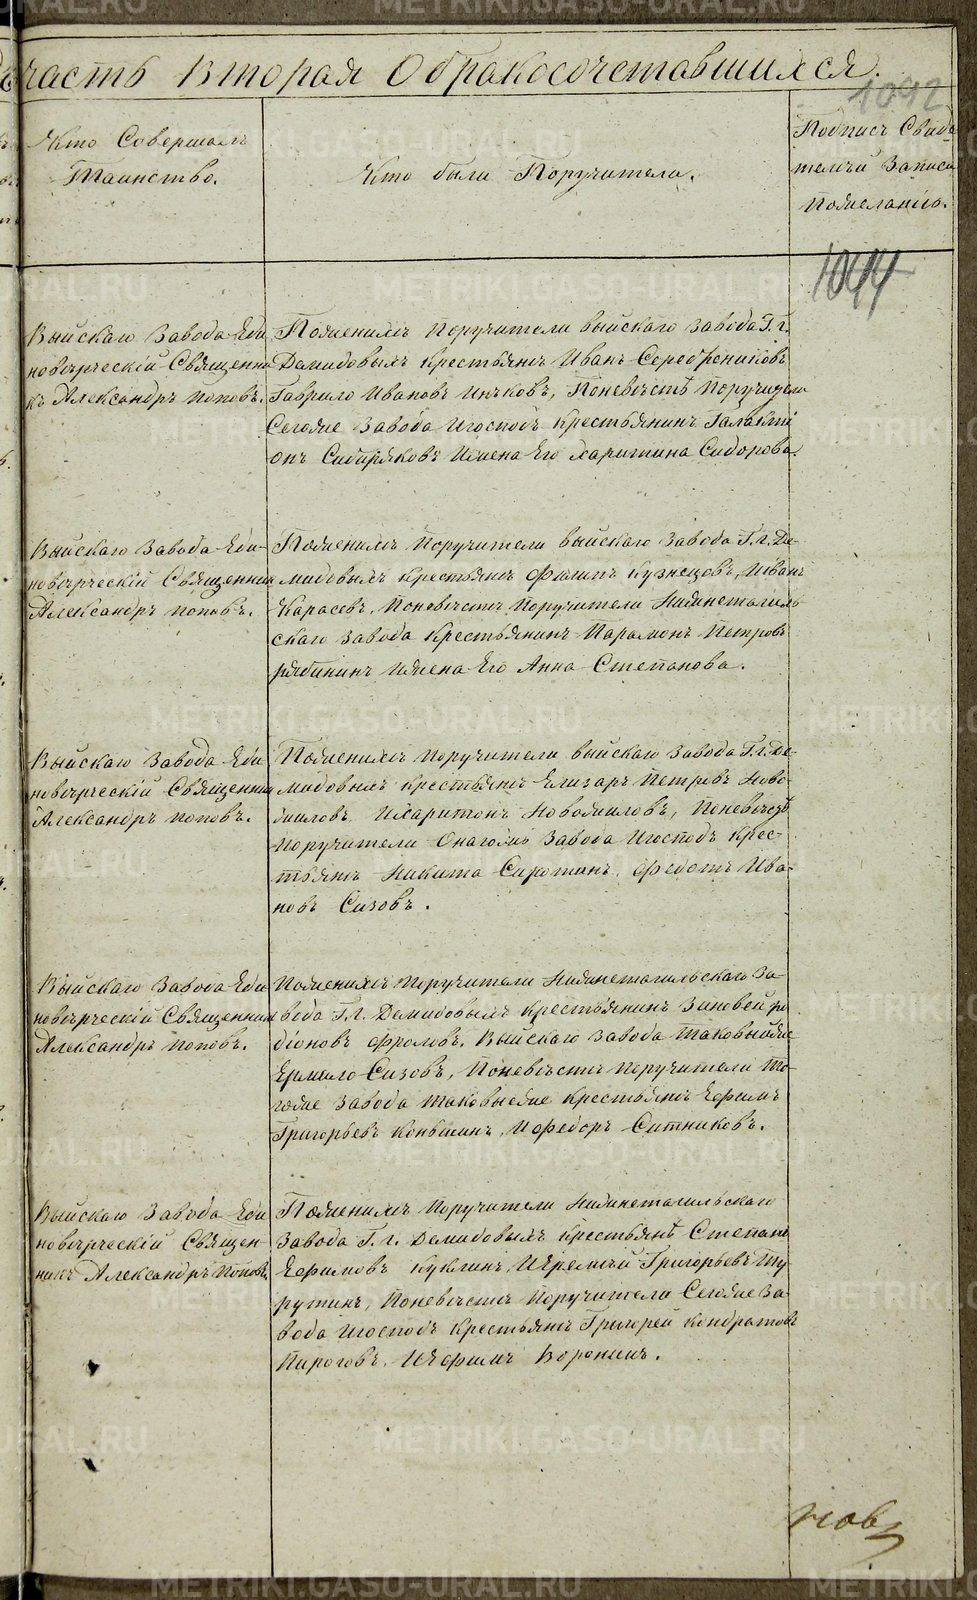 часть Вторая Обракосочетавшихся.
1092
Кто Совершалъ
Таинство.
Кто были Поручители.
Подпись Свиде
телей Записи
Пожеланію.
1044
Выйскаго Завода Еди
новѣрческій Священни
къ Александръ Поповъ.
Поженихѣ Поручители выйскаго завода Г. г.
Демидовыхъ крестьянѣ Иванъ Серебрениковъ
Гаврило Ивановъ Инѣковъ, Поневѣстѣ Поручители
Сегоже Завода Игосподъ крестьянинъ Галакті
онъ Сибиряковъ Ижена Его Харитина Сидорова.
Выйскаго Завода Еди-
новѣрческій Священникъ
Александръ поповъ.
Поженихѣ Поручители выйскаго Завода Г. г. Де-
мидовыхъ крестьянѣ Филипъ Кузнецовъ, Иванъ
Карасевъ, Поневѣстѣ Поручители Нижнетагиль
скаго завода крестьянинъ Парамонъ Петровъ
рябининъ Ижена Его Анна Степанова.
Выйскаго Завода Еди
новѣрческій Священникъ
Александръ поповъ.
Поженихѣ Поручители выйскаго Завода Г. г. Де-
мидовыхъ крестьянѣ Елизаръ Петровъ Ново-
жиловъ Ихаритонъ Новожиловъ, Поневѣстѣ
Поручители Онагожъ Завода Игосподъ крес-
тьянѣ Никита Сиротинъ, Федотъ Ива-
новъ Сизовъ.
Выйскаго Завода Еди
новѣрческій Священникъ
Александръ поповъ.
Поженихѣ Поручители Нижнетагильскаго За-
вода Г. г. Демидовыхъ крестьянинъ Зиновей
діоновъ Фроловъ. Выйскаго Завода таковыйже
Ермило Сизовъ, Поневѣстѣ Поручители То-
гоже Завода таковыеже крестьянѣ Ефимъ
Григорьевъ Коньшинъ, Ифедоръ Ситниковъ.
Выйскаго Завода Еди
новѣрческій Священ-
никъ Александръ Поповъ.
Поженихѣ Поручители Нижнетагильскаго
Завода Г. г. Демидовыхъ крестьянѣ Степанъ
Ефимовъ Куклинъ, Иеремѣй Григорьевъ Ту
рутинъ, Поневѣстѣ Поручители Сегоже За-
вода Игосподъ крестьянѣ Григорей Кондратовъ
Пироговъ, Иефимъ Воронинъ.
повъ